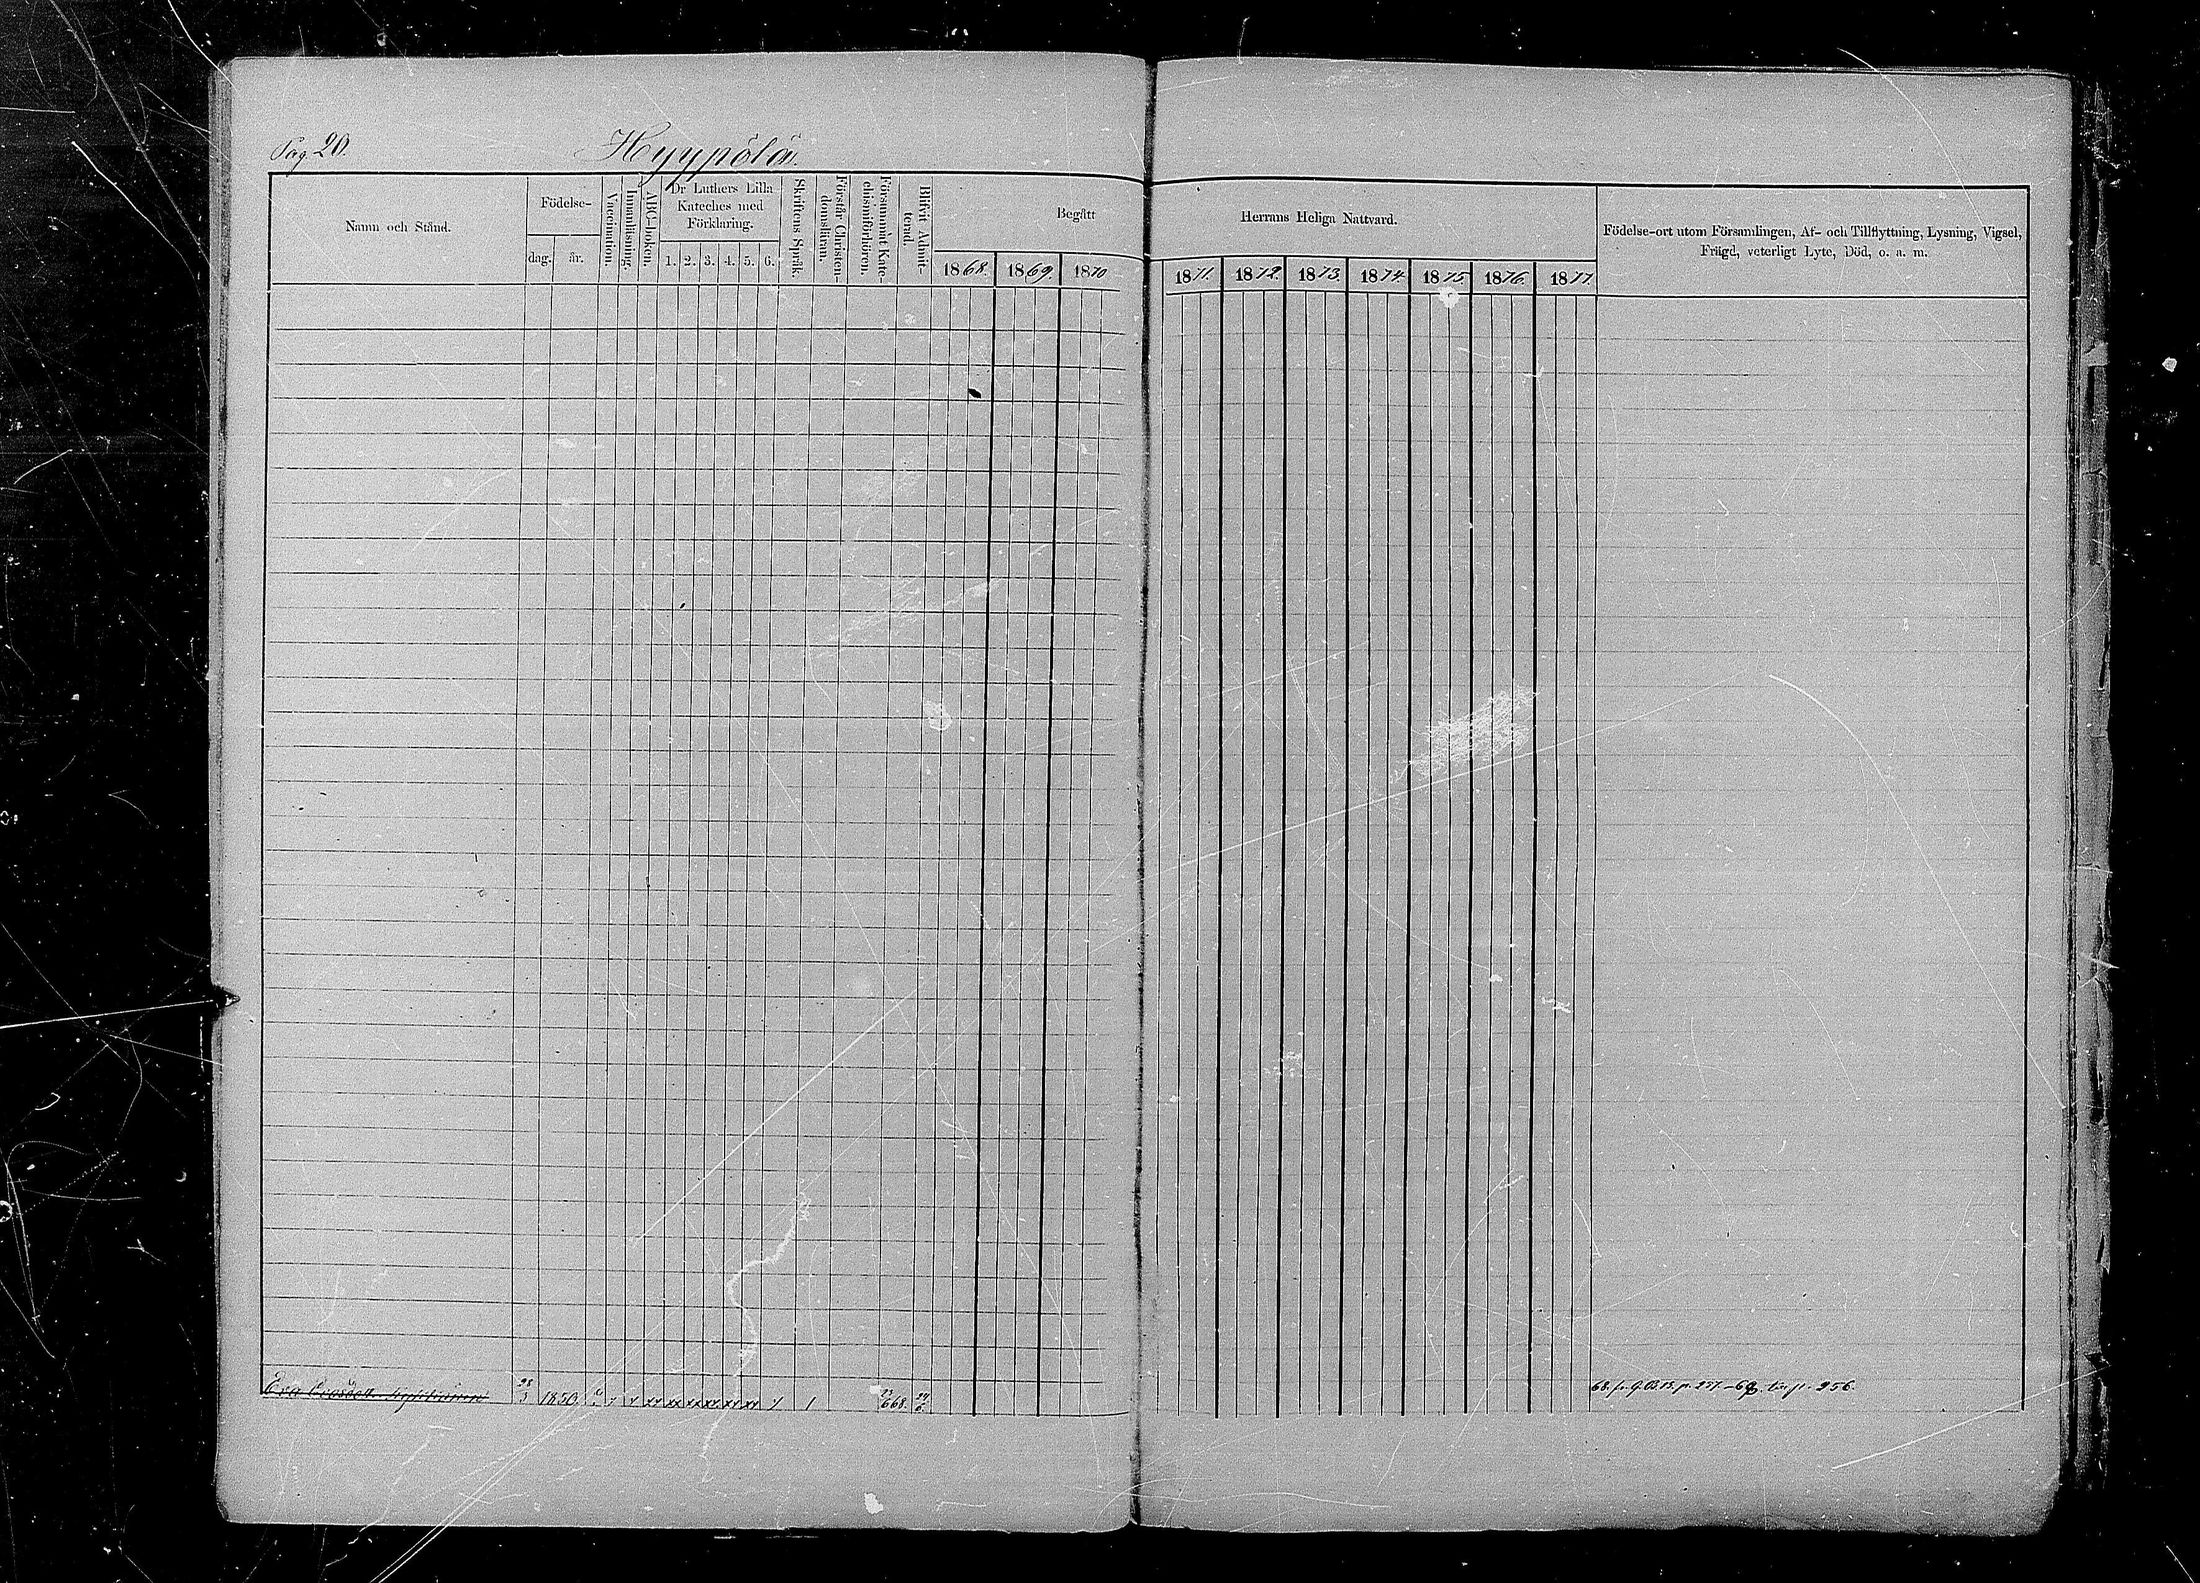 Pag 20.
Hyypölä.
Namn och Stånd.
Födelse-
dag.
år.
Vaccination.
Innanläsning.
ABC-boken.
Dr Luthers Lilla
Kateches med
Förklaring.
1. 2. 3. 4. 5. 6.
Skriftens Språk.
Förstår Christen-
domsläran.
Försummat Kate-
chismiförhören.
Blifvit Admit-
terad.
Begått
1868. 1869. 1870
Herrans Heliga Nattvard.
1871. 1872. 1873. 1874. 1875. 1876. 1877.
Födelse-ort utom Församlingen, Af- och Tillflyttning, Lysning, Vigsel,
Frägd, veterligt Lyte, Död, o. a. m.
Eva 28/3 1850. 23/668. 24/6
68. fr. G.B. 15. p. 257. -69. p. 256.